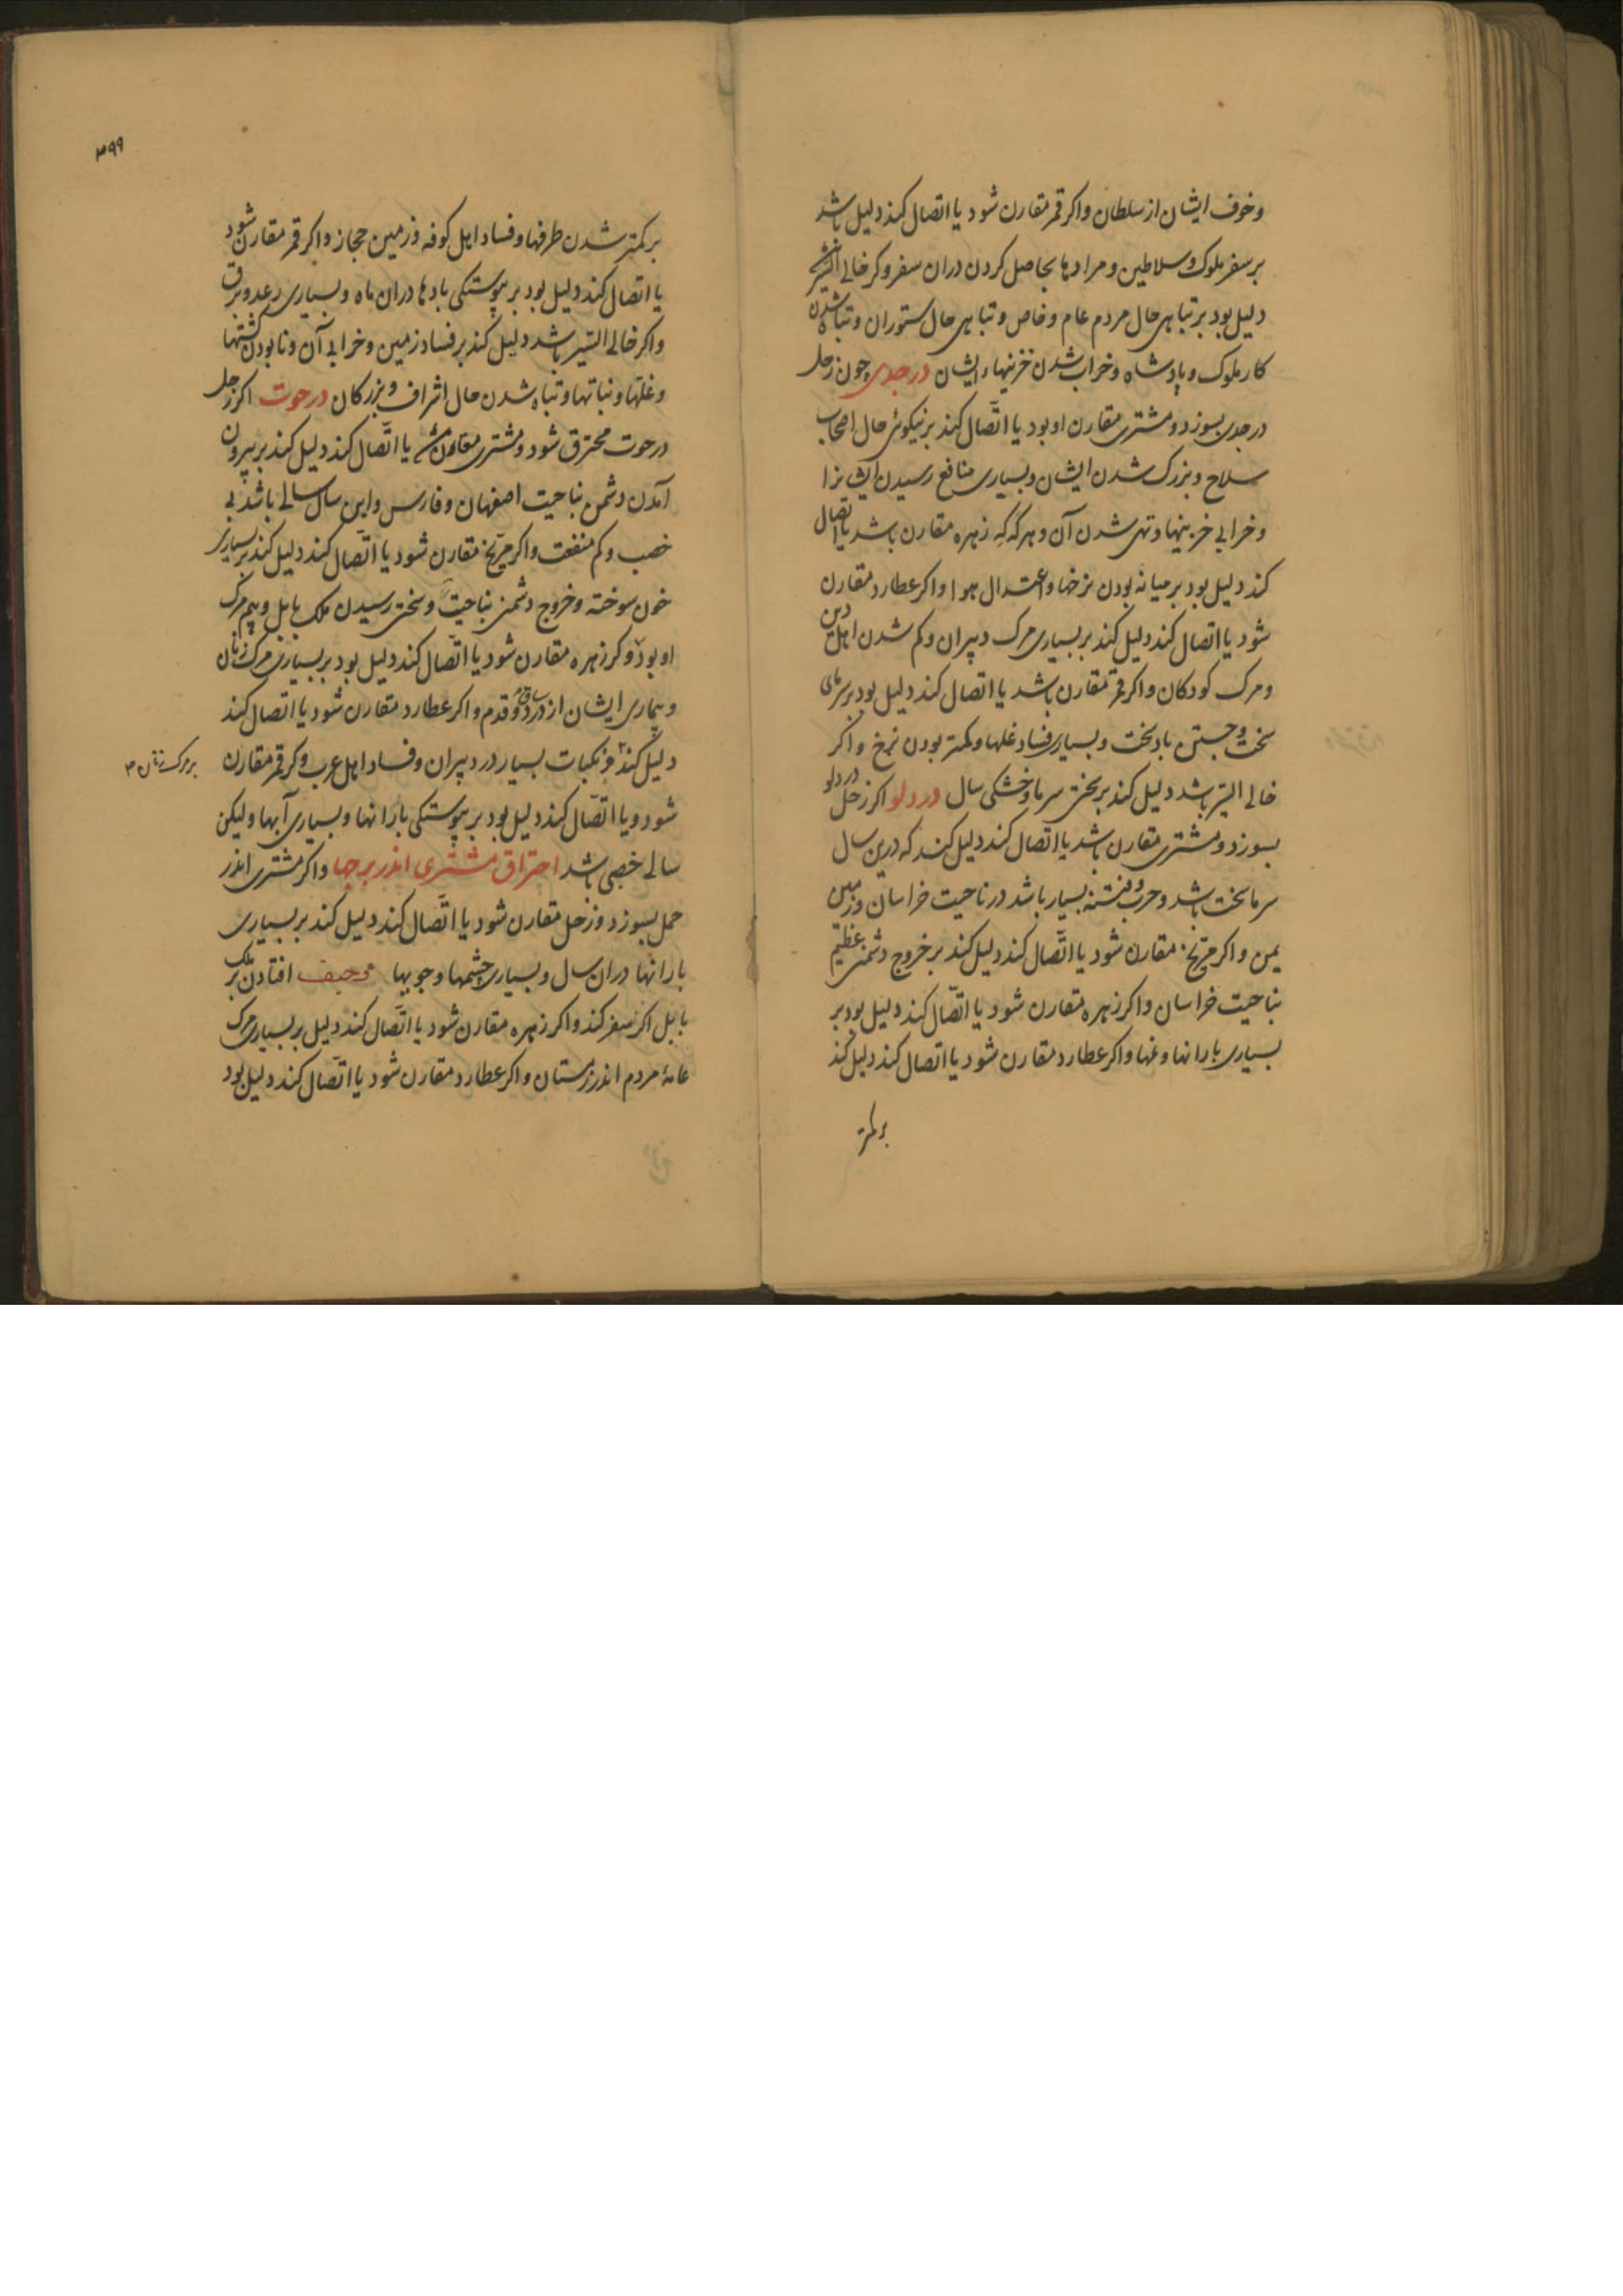 وخوف ایشان از سلطان واکر قمر مقارن شود یا اتصال کند دلیل باشد
بر سفر ملوک وسلاطین ومرادها بحاصل کردن دران سفر وکر خالی السیر باشد
دلیل بود بر تباهی حال مردم عام وخاص وتباهی حال ستوران وتباه شدن
کار ملوک وپادشاه وخراب شدن خزینهاء ایشان در جدی چون زحل
در جدی بسوزد ومشتری مقارن او بود یا اتّصال کند بر نیکوئی حال اصحاب
سلاح وبزرک شدن ایشان وبسیاری منافع رسیدن ایشانرا
وخرابی خزینها وتهی شدن آن وهر که که زهره مقارن باشد یا اتصال
کند دلیل بود بر میانه بودن نرخها واعتدال هوا واکر عطارد مقارن
شود یا اتصال کند دلیل کند بر بسیاری مرک دبیران وکم شدن اهل دین
ومرک کودکان واکر قمر مقارن باشد یا اتصال کند دلیل بود بر سرمای
سخت وجستن باد سخت وبسیاری فساد غلها وکمتر بودن نرخ واکر
خالی السیر باشد دلیل کند بر سختی سرما وخشکی سال در دلو اکر زحل در دلو
بسوزد ومشتری مقارن باشد یا اتصال کند دلیل کند که درین سال
سرما سخت باشد وحرب وفتنه بسیار باشد در ناحیت خراسان وزمین
یمن واکر مرّیخ مقارن شود یا اتّصال کند دلیل کند بر خروج دشمنی عظیم
بناحیت خراسان واکر زهره مقارن شود یا اتّصال کند دلیل بود بر
بسیاری بارانها وغمها واکر عطارد مقارن شود یا اتصال کند دلیل کند
بر کمتر
۳۹۹
بر کمتر شدن طرفها وفساد اهل کوفه وزمین حجاز واکر قمر مقارن شود
یا اتصال کند دلیل بود بر پیوستکی بادها دران ماه وبسیاری رعد وبرق
واکر خالی السیر باشد دلیل کند بر فساد زمین وخرابی آن ونابودن کشتها
وغلّها ونباتها وتباه شدن حال اشراف وبزرکان در حوت اکر زحل
در حوت محترق شود ومشتری مقارن یا اتّصال کند دلیل کند بر بیرون
آمدن دشمن بناحیت اصفهان وفارس واین سال سالی باشد بی
خصب وکم منفعت واکر مرّیخ مقارن شود یا اتّصال کند دلیل کند بر بسیاری
خون سوخته وخروج دشمنی بناحیت وسختی رسیدن ملک بابل وبیم مرک
او بود وکر زهره مقارن شود یا اتّصال کند دلیل بود بر بسیاری مرک زنان
وبیماری ایشان از درد ساق وقدم واکر عطارد مقارن شود یا اتصال کند
دلیل کند بر نکبات بسیار در دبیران وفساد اهل عرب وکر قمر مقارن
بر مرک زنان ۳
شود ویا اتّصال کند دلیل بود بر پیوستکی بارانها وبسیاری آبها ولیکن
سالی خصبی باشد احتراق مشتری اندر برجها واکر مشتری اندر
حمل بسوزد وزحل مقارن شود یا اتّصال کند دلیل کند بر بسیاری
بارانها دران سال وبسیاری چشمها وجویها افتادن بر ملک
بابل اکر سفر کند واکر زهره مقارن شود یا اتّصال کند دلیل بر بسیاری مرک
عامهٔ مردم اندر زمستان واکر عطارد مقارن شود یا اتّصال کند دلیل بود